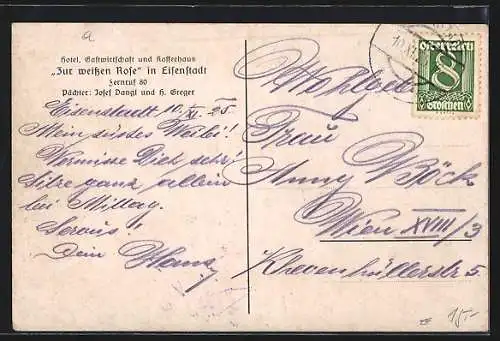 a
Hotel, Gastwirtschaft und Kaffeehaus
„Zur weißen Rose" in Eisenstadt
Fernruf 80
Pächter: Josef Dangl und H. Greger
Eisenstadt 10. XI. 25.
Mein süsses Weibi!
Vermisse Dich sehr!
Sitze ganz allein
bei Mittag.
Servus!
Dein Hans
Österreich
8
Groschen
Wohlgeb
Frau
Anny Böck
Wien XVIII/3
Khevenhüllerstr 5.
15.-